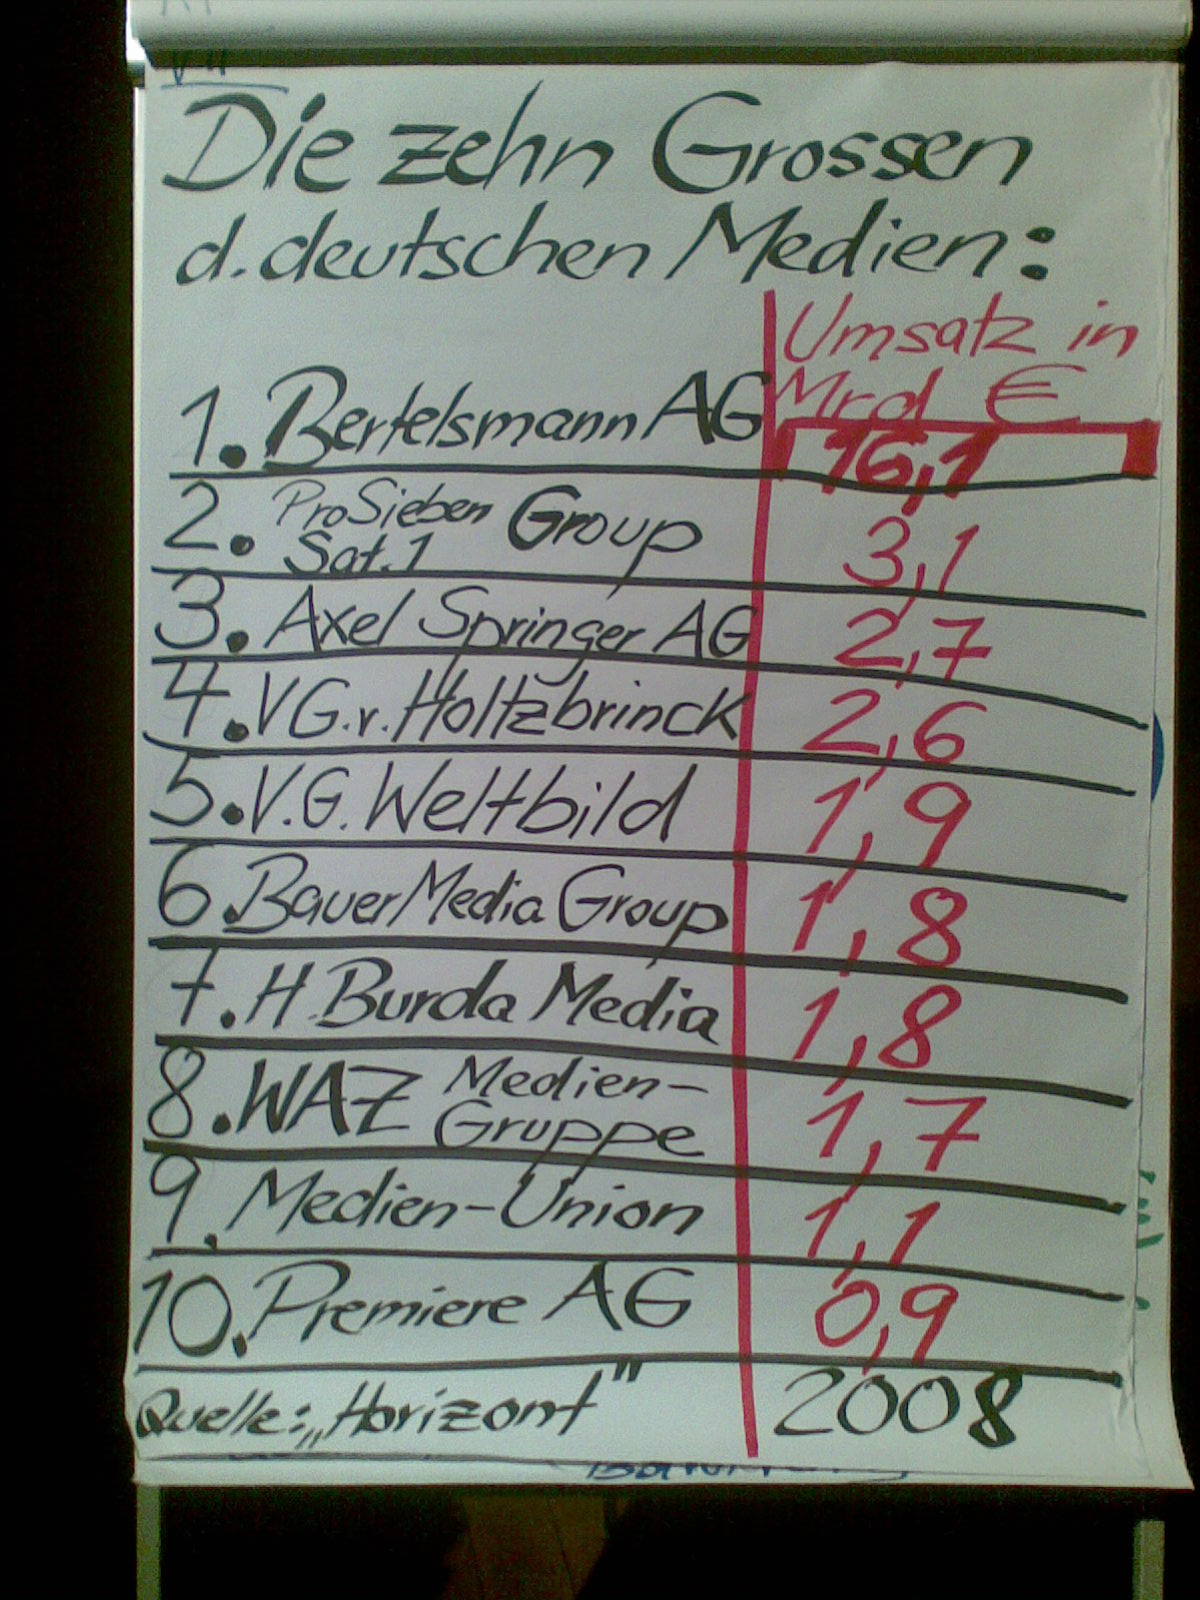 Die zehn Grossen
d. deutschen Medien:
Umsatz in
Mrd €
1. Bertelsmann AG 16,1
2. ProSieben Sat.1 Group 3,1
3. Axel Springer AG 2,7
4. VG. v. Holtzbrinck 2,6
5. V.G. Weltbild 1,9
6. Bauer Media Group 1,8
7. H. Burda Media 1,8
8. WAZ Medien-Gruppe 1,7
9. Medien-Union 1,1
10. Premiere AG 0,9
Quelle: „Horizont" 2008